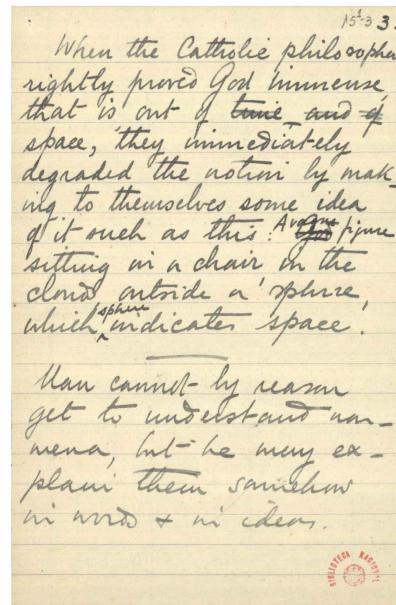 15-1-3 3.
When the Catholic philosopher
rightly proved God immense,
that is out of time and of
space, they immediately
degraded the notion by mak-
ing to themselves some idea
of it such as this: A vague figure
sitting in a chair in the
clouds outside a sphere,
which sphere indicates space.
Man cannot by reason
get to understand nou-
mena, but he may ex-
plain them somehow
in words & in ideas.
BIBLIOTECA NACIONAL